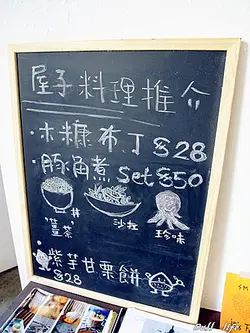 屋子料理推介
·木糠布丁 $28
·豚角煮 Set $50
丼
薑茶
沙拉
珍味
·紫芋甘栗餅
$28